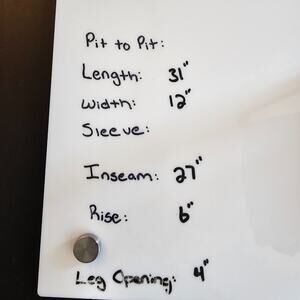 Pit to Pit:
Length: 31"
Width: 12"
Sleeve:
Inseam: 27"
Rise: 6"
Leg Opening: 4"